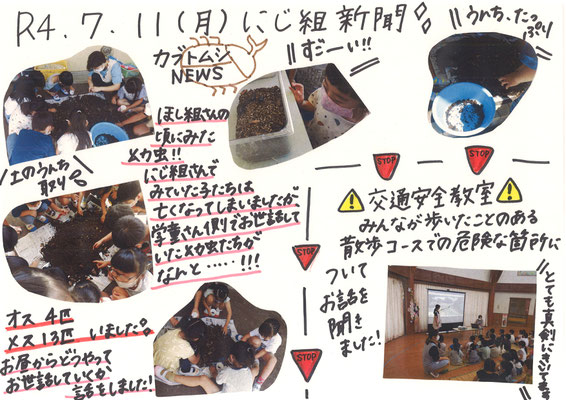 R4.7.11(月)にじ組新聞
カブトムシ
NEWS
\\すご〜い!!//
\\うんち、たっぷり//
\土のうんち取り/
ほし組さんの
頃にみた
幼虫!!
にじ組さんで
みていた子たちは
亡くなってしまいましたが
学童さん側でお世話して
いた幼虫たちが
なんと……!!!
オス4匹
メス13匹 いました。
お昼からどうやって
お世話していくか
話をしました!
STOP
STOP
STOP
STOP
交通安全教室
みんなが歩いたことのある
散歩コースでの危険な箇所に
ついて
お話を
聞き
ました!
とても真剣にきいてます